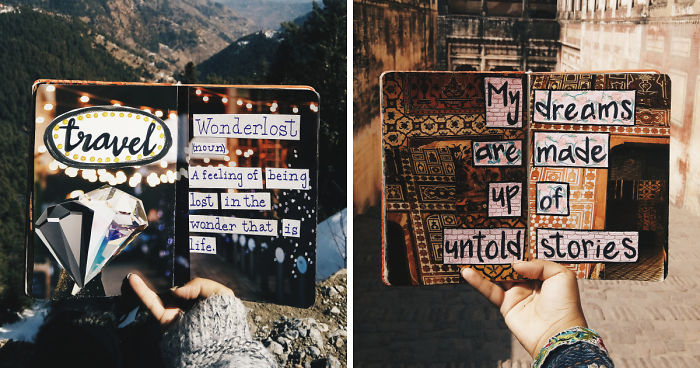 travel
Wonderlost
(noun)
A feeling of being
lost in the
wonder that is
life.
My dreams
are made
up of
untold stories